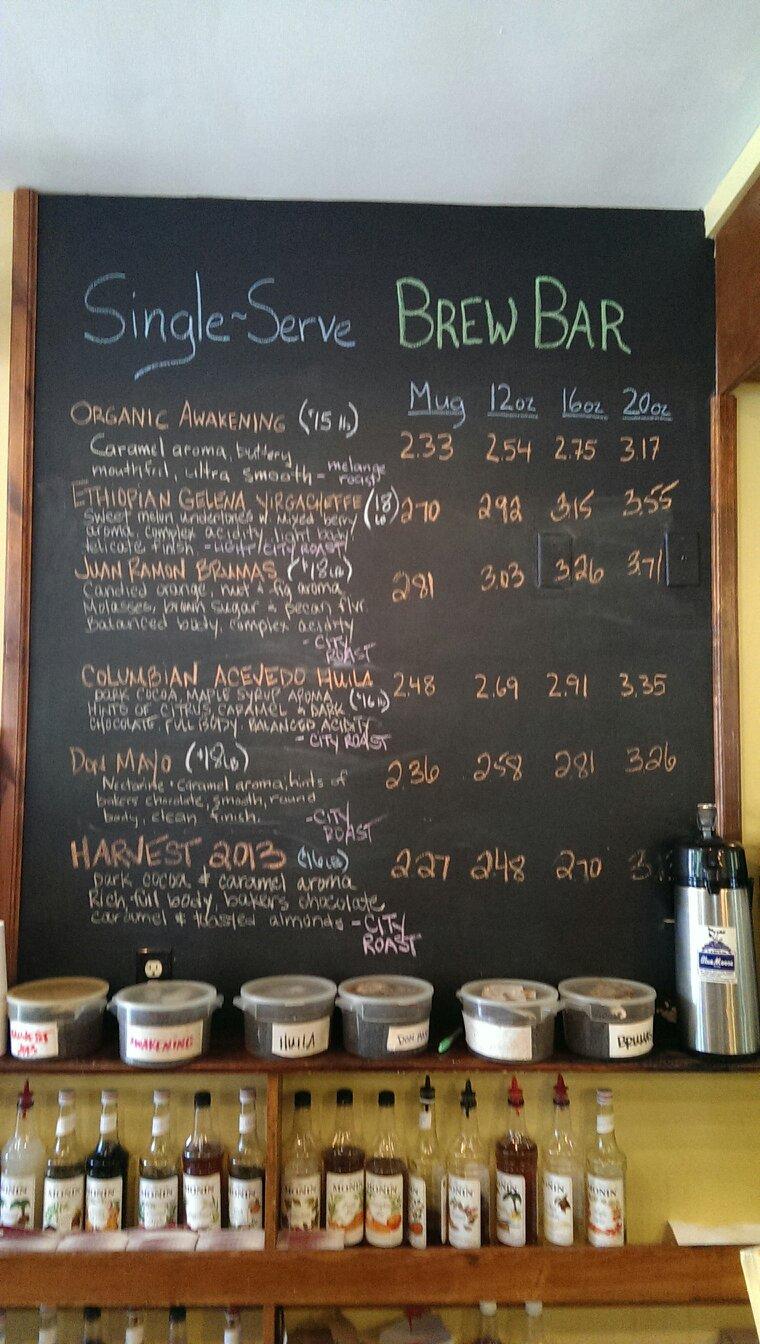 Single~Serve BREW BAR
Mug 12oz 16oz 20oz
ORGANIC AWAKENING ($15 lb) 2.33 2.54 2.75 3.17
Caramel aroma, buttery
mouthful, ultra smooth - melange
roast
ETHIOPIAN GELENA YIRGACHEFFE (18 lb) 2.70 2.92 3.15 3.55
Sweet melon undertones w/ mixed berry
aroma, complex acidity, light body,
delicate finish. - LIGHT/CITY ROAST
JUAN RAMON BRUMAS ($18 lb) 2.81 3.03 3.26 3.71
Candied orange, nut & fig aroma
Molasses, brown sugar & pecan flvr.
Balanced body, complex acidity
- CITY
ROAST
COLUMBIAN ACEVEDO HUILA 2.48 2.69 2.91 3.35
DARK COCOA, MAPLE SYRUP AROMA ($16 lb)
HINTS OF CITRUS, CARAMEL & DARK
CHOCOLATE, FULL BODY, BALANCED ACIDITY
- CITY ROAST
DON MAYO ($18 lb) 2.36 2.58 2.81 3.26
Nectarine & caramel aroma, hints of
bakers chocolate, smooth, round
body, clean finish.
- CITY
ROAST
HARVEST 2013 ($16 lb) 2.27 2.48 2.70
Dark cocoa & caramel aroma
Rich, full body, bakers chocolate
caramel & toasted almonds - CITY
ROAST
Blue Moose
2013 AWAKENING HUILA DON MAYO BRUMAS
MONIN MONIN MONIN MONIN MONIN MONIN MONIN MONIN MONIN MONIN MONIN MONIN